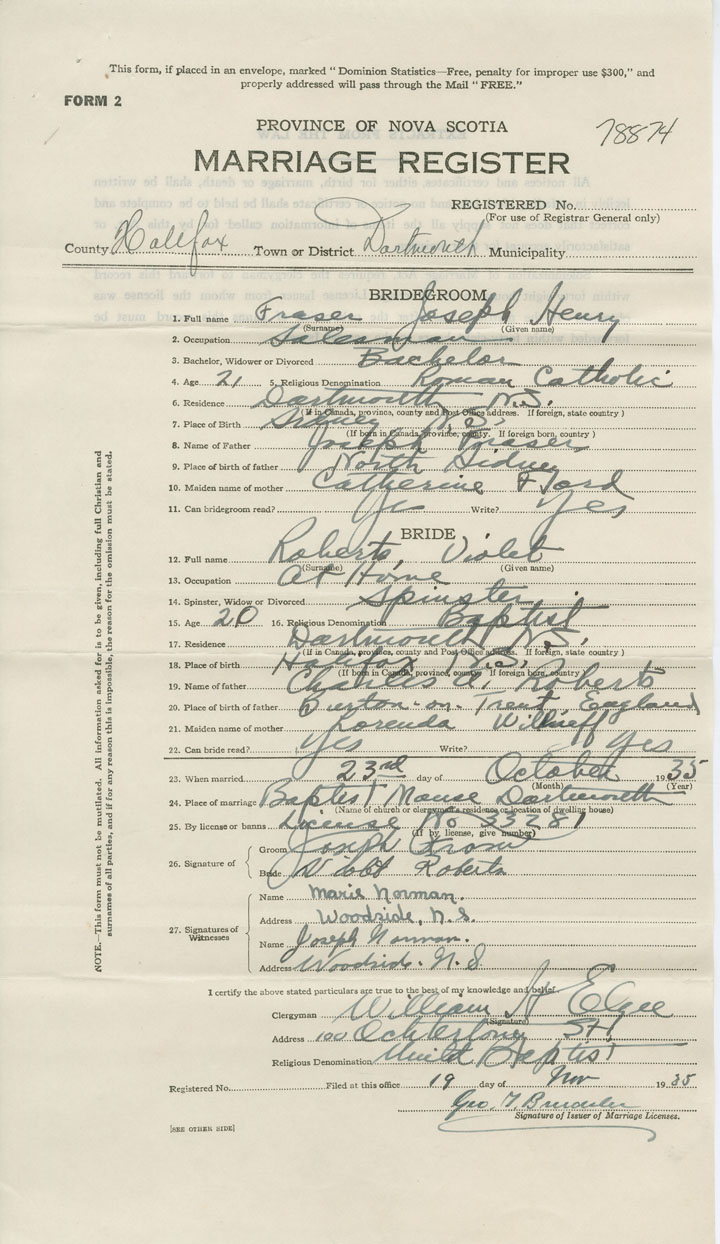 This form, if placed in an envelope, marked "Dominion Statistics—Free, penalty for improper use $300," and
properly addressed will pass through the Mail "FREE."
FORM 2
PROVINCE OF NOVA SCOTIA
78874
MARRIAGE REGISTER
REGISTERED No.
(For use of Registrar General only)
County Halifax Town or District Dartmouth Municipality
BRIDEGROOM
1. Full name Fraser Joseph Henry
(Surname) (Given name)
2. Occupation Salesman
3. Bachelor, Widower or Divorced Bachelor
4. Age 21 5. Religious Denomination Roman Catholic
6. Residence Dartmouth N.S.
(If in Canada, province, county and Post Office address. If foreign, state country)
7. Place of Birth Sidney N.S.
(If born in Canada, province, county. If foreign born, country)
8. Name of Father Joseph Fraser
9. Place of birth of father North Sidney
10. Maiden name of mother Catherine Ford
11. Can bridegroom read? Yes Write? Yes
BRIDE
12. Full name Roberts, Violet
(Surname) (Given name)
13. Occupation At Home
14. Spinster, Widow or Divorced Spinster
15. Age 20 16. Religious Denomination Baptist
17. Residence Dartmouth N.S.
(If in Canada, province, county and Post Office address. If foreign, state country)
18. Place of birth Halifax N.S.
(If born in Canada, province, county. If foreign born, country)
19. Name of father Charles A. Roberts
20. Place of birth of father Burton-on-Trent, England
21. Maiden name of mother Lorenda
22. Can bride read? Yes Write? Yes
23. When married 23rd day of October 1935
(Month) (Year)
24. Place of marriage Baptist Manse Dartmouth
(Name of church or clergyman's residence or location of dwelling house)
25. By license or banns License No 33281
(If by license, give number)
26. Signature of
Groom Joseph Fraser
Bride Violet Roberts
27. Signatures of Witnesses
Name Marie Norman.
Address Woodside, N.S.
Name Joseph Norman.
Address Woodside. N.S.
I certify the above stated particulars are true to the best of my knowledge and belief.
Clergyman William A Elgee
(Signature)
Address 100 Ochterloney St
Religious Denomination United Baptist
Registered No. Filed at this office 19 day of Nov 1935
Geo. T.
Signature of Issuer of Marriage Licenses.
[SEE OTHER SIDE]
NOTE.—This form must not be mutilated. All information asked for is to be given, including full Christian and
surnames of all parties, and if for any reason this is impossible, the reason for the omission must be stated.